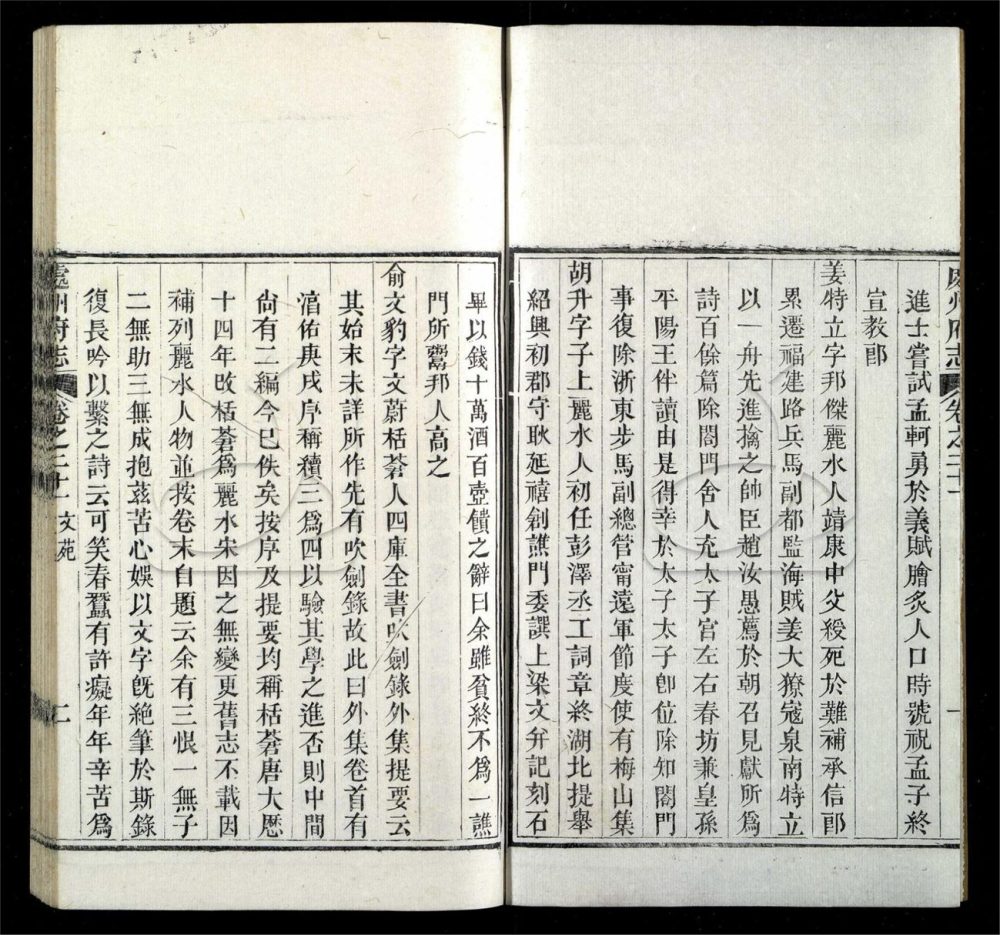 處州府志 卷之二十一 一
進士嘗試孟軻勇於義賦膾炙人口時號祝孟子終
宣教郎
姜特立字邦傑麗水人靖康中父綬死於難補承信郎
累遷福建路兵馬副都監海賊姜大獠寇泉南特立
以一舟先進擒之帥臣趙汝愚薦於朝召見獻所爲
詩百餘篇除閤門舍人充太子宮左右春坊兼皇孫
平陽王伴讀由是得幸於太子太子卽位除知閤門
事復除浙東步馬副總管甯遠軍節度使有梅山集
胡升字子上麗水人初任彭澤丞工詞章終湖北提舉
紹興初郡守耿延禧創譙門委譔上梁文弁記刻石
畢以錢十萬酒百壺饋之辭曰余雖貧終不爲一譙
門所鬻邦人高之
俞文豹字文蔚栝蒼人四庫全書吹劍錄外集提要云
其始末未詳所作先有吹劍錄故此曰外集卷首有
淳佑庚戌序稱續三爲四以驗其學之進否則中間
尙有二編今已佚矣按序及提要均稱栝蒼唐大厯
十四年改栝蒼爲麗水宋因之無變更舊志不載因
補列麗水人物並按卷末自題云余有三恨一無子
二無助三無成抱茲苦心娛以文字旣絕筆於斯錄
復長吟以繫之詩云可笑春蠶有許癡年年辛苦爲
處州府志 卷之二十一 文苑 二